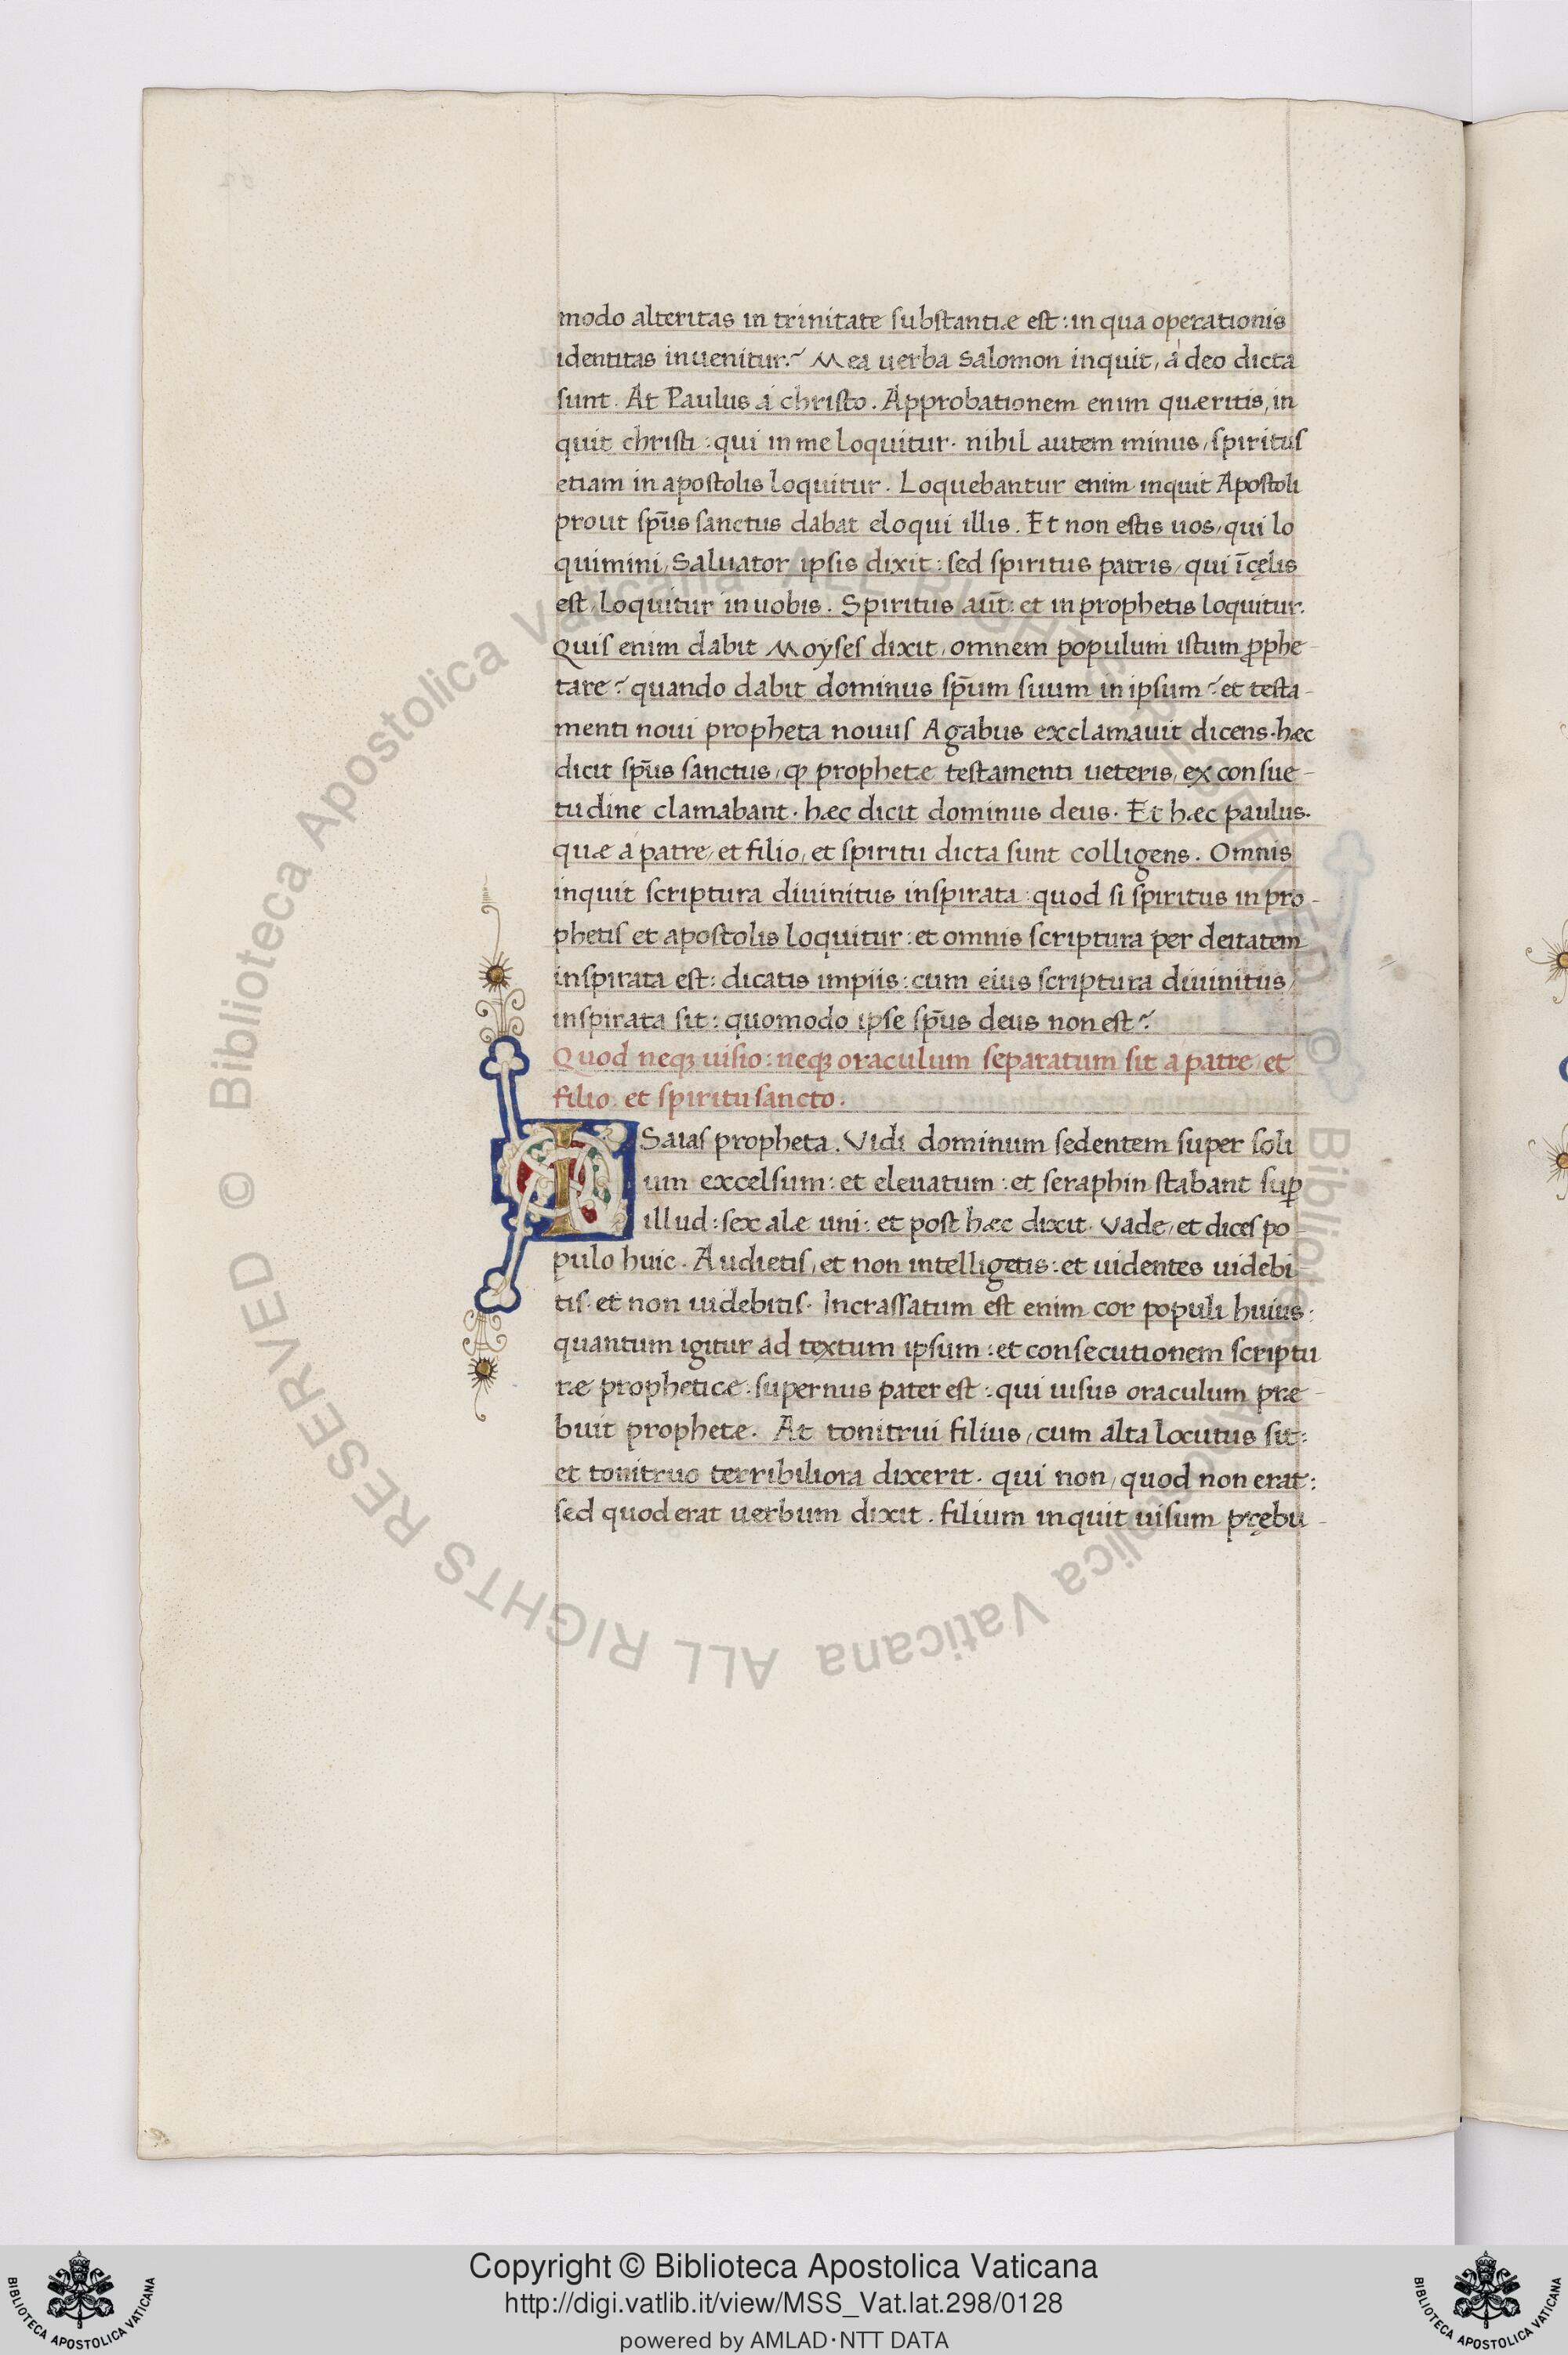 modo alteritas in trinitate substantiæ est: in qua operationis
identitas inuenitur? Mea uerba Salomon inquit, á deo dicta
sunt. At Paulus á christo. Approbationem enim quæritis, in
quit christi: qui in me loquitur. nihil autem minus, spiritus
etiam in apostolis loquitur. Loquebantur enim inquit Apostoli
prout sp̄us sanctus dabat eloqui illis. Et non estis uos, qui lo
quimini, Saluator ipsis dixit: sed spiritus patris, qui ī cęlis
est, loquitur in uobis. Spiritus aūt: et in prophetis loquitur.
Quis enim dabit Moyses dixit, omnem populum istum ꝓphe-
tare? quando dabit dominus sp̄um suum in ipsum? et testa-
menti noui propheta nouus Agabus exclamauit dicens. hæc
dicit sp̄us sanctus, ꝙ prophetæ testamenti ueteris, ex consue-
tudine clamabant. hæc dicit dominus deus. Et hæc paulus.
quæ á patre, et filio, et spiritu dicta sunt colligens. Omnis
inquit scriptura diuinitus inspirata: quod si spiritus in pro-
phetis et apostolis loquitur: et omnis scriptura per deitatem
inspirata est: dicatis impiis: cum eius scriptura diuinitus,
inspirata sit: quomodo ipse sp̄us deus non est?
Quod neqꝫ uisio: neqꝫ oraculum separatum sit a patre, et
filio et spiritu sancto.
ISaias propheta. Vidi dominum sedentem super soli
um excelsum: et eleuatum: et seraphin stabant suꝑ
illud: sex alæ uni: et post hæc dixit. Vade, et dices po-
pulo huic. Audietis, et non intelligetis: et uidentes uidebi
tis. et non uidebitis. Incrassatum est enim cor populi huius:
quantum igitur ad textum ipsum: et consecutionem scriptu
ræ propheticæ: supernus pater est: qui uisus oraculum præ-
buit prophetæ. At tonitrui filius, cum alta locutus sit:
et tonitruo terribiliora dixerit. qui non, quod non erat:
sed quod erat uerbum dixit. filium inquit uisum prębu-
© Biblioteca Apostolica Vaticana ALL RIGHTS RESERVED © Biblioteca Apostolica Vaticana ALL RIGHTS RESERVED
BIBLIOTECA APOSTOLICA VATICANA
Copyright © Biblioteca Apostolica Vaticana
http://digi.vatlib.it/view/MSS_Vat.lat.298/0128
powered by AMLAD·NTT DATA
BIBLIOTECA APOSTOLICA VATICANA